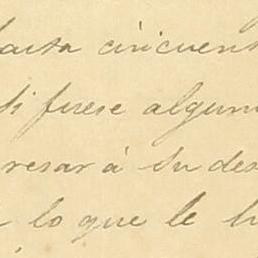 hasta cincuent
Si fuese algun
resar á su des
lo que le h